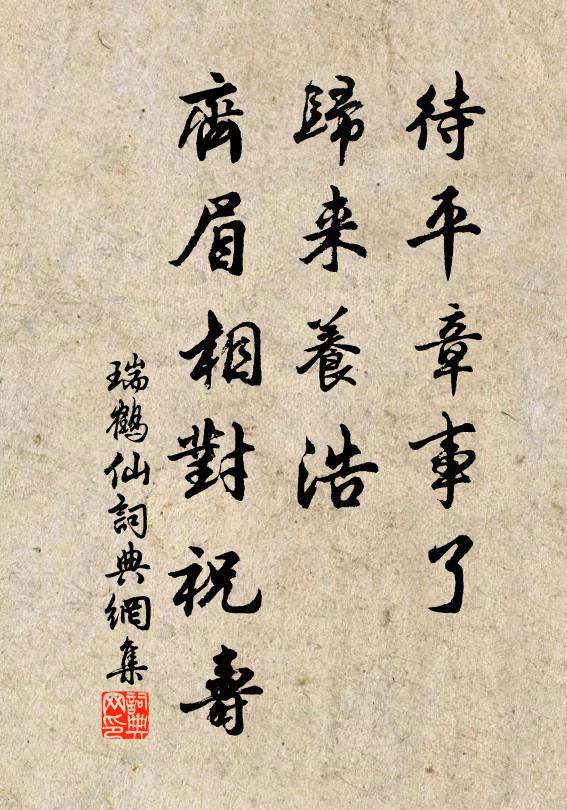 待平章事了
歸来養浩
齊眉相對祝壽
瑞鶴仙詞典網集
詞典网印